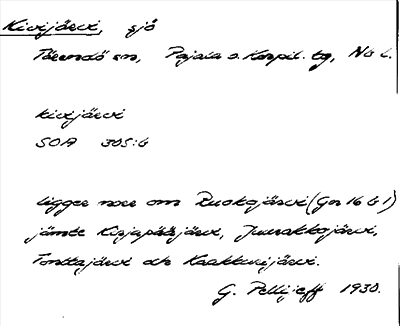 Kivijärvi, sjö
Tärendö sn, Pajala o. Korpil. tg, Nb l.
kivijärvi
SOA 305:6
ligger norr om Ruokojärvi (Gos 16 b 1)
jämte Kirjapääjärvi, Juurakkojärvi,
Tonttajärvi och Kaakkurijärvi.
G. Pellijeff 1930.